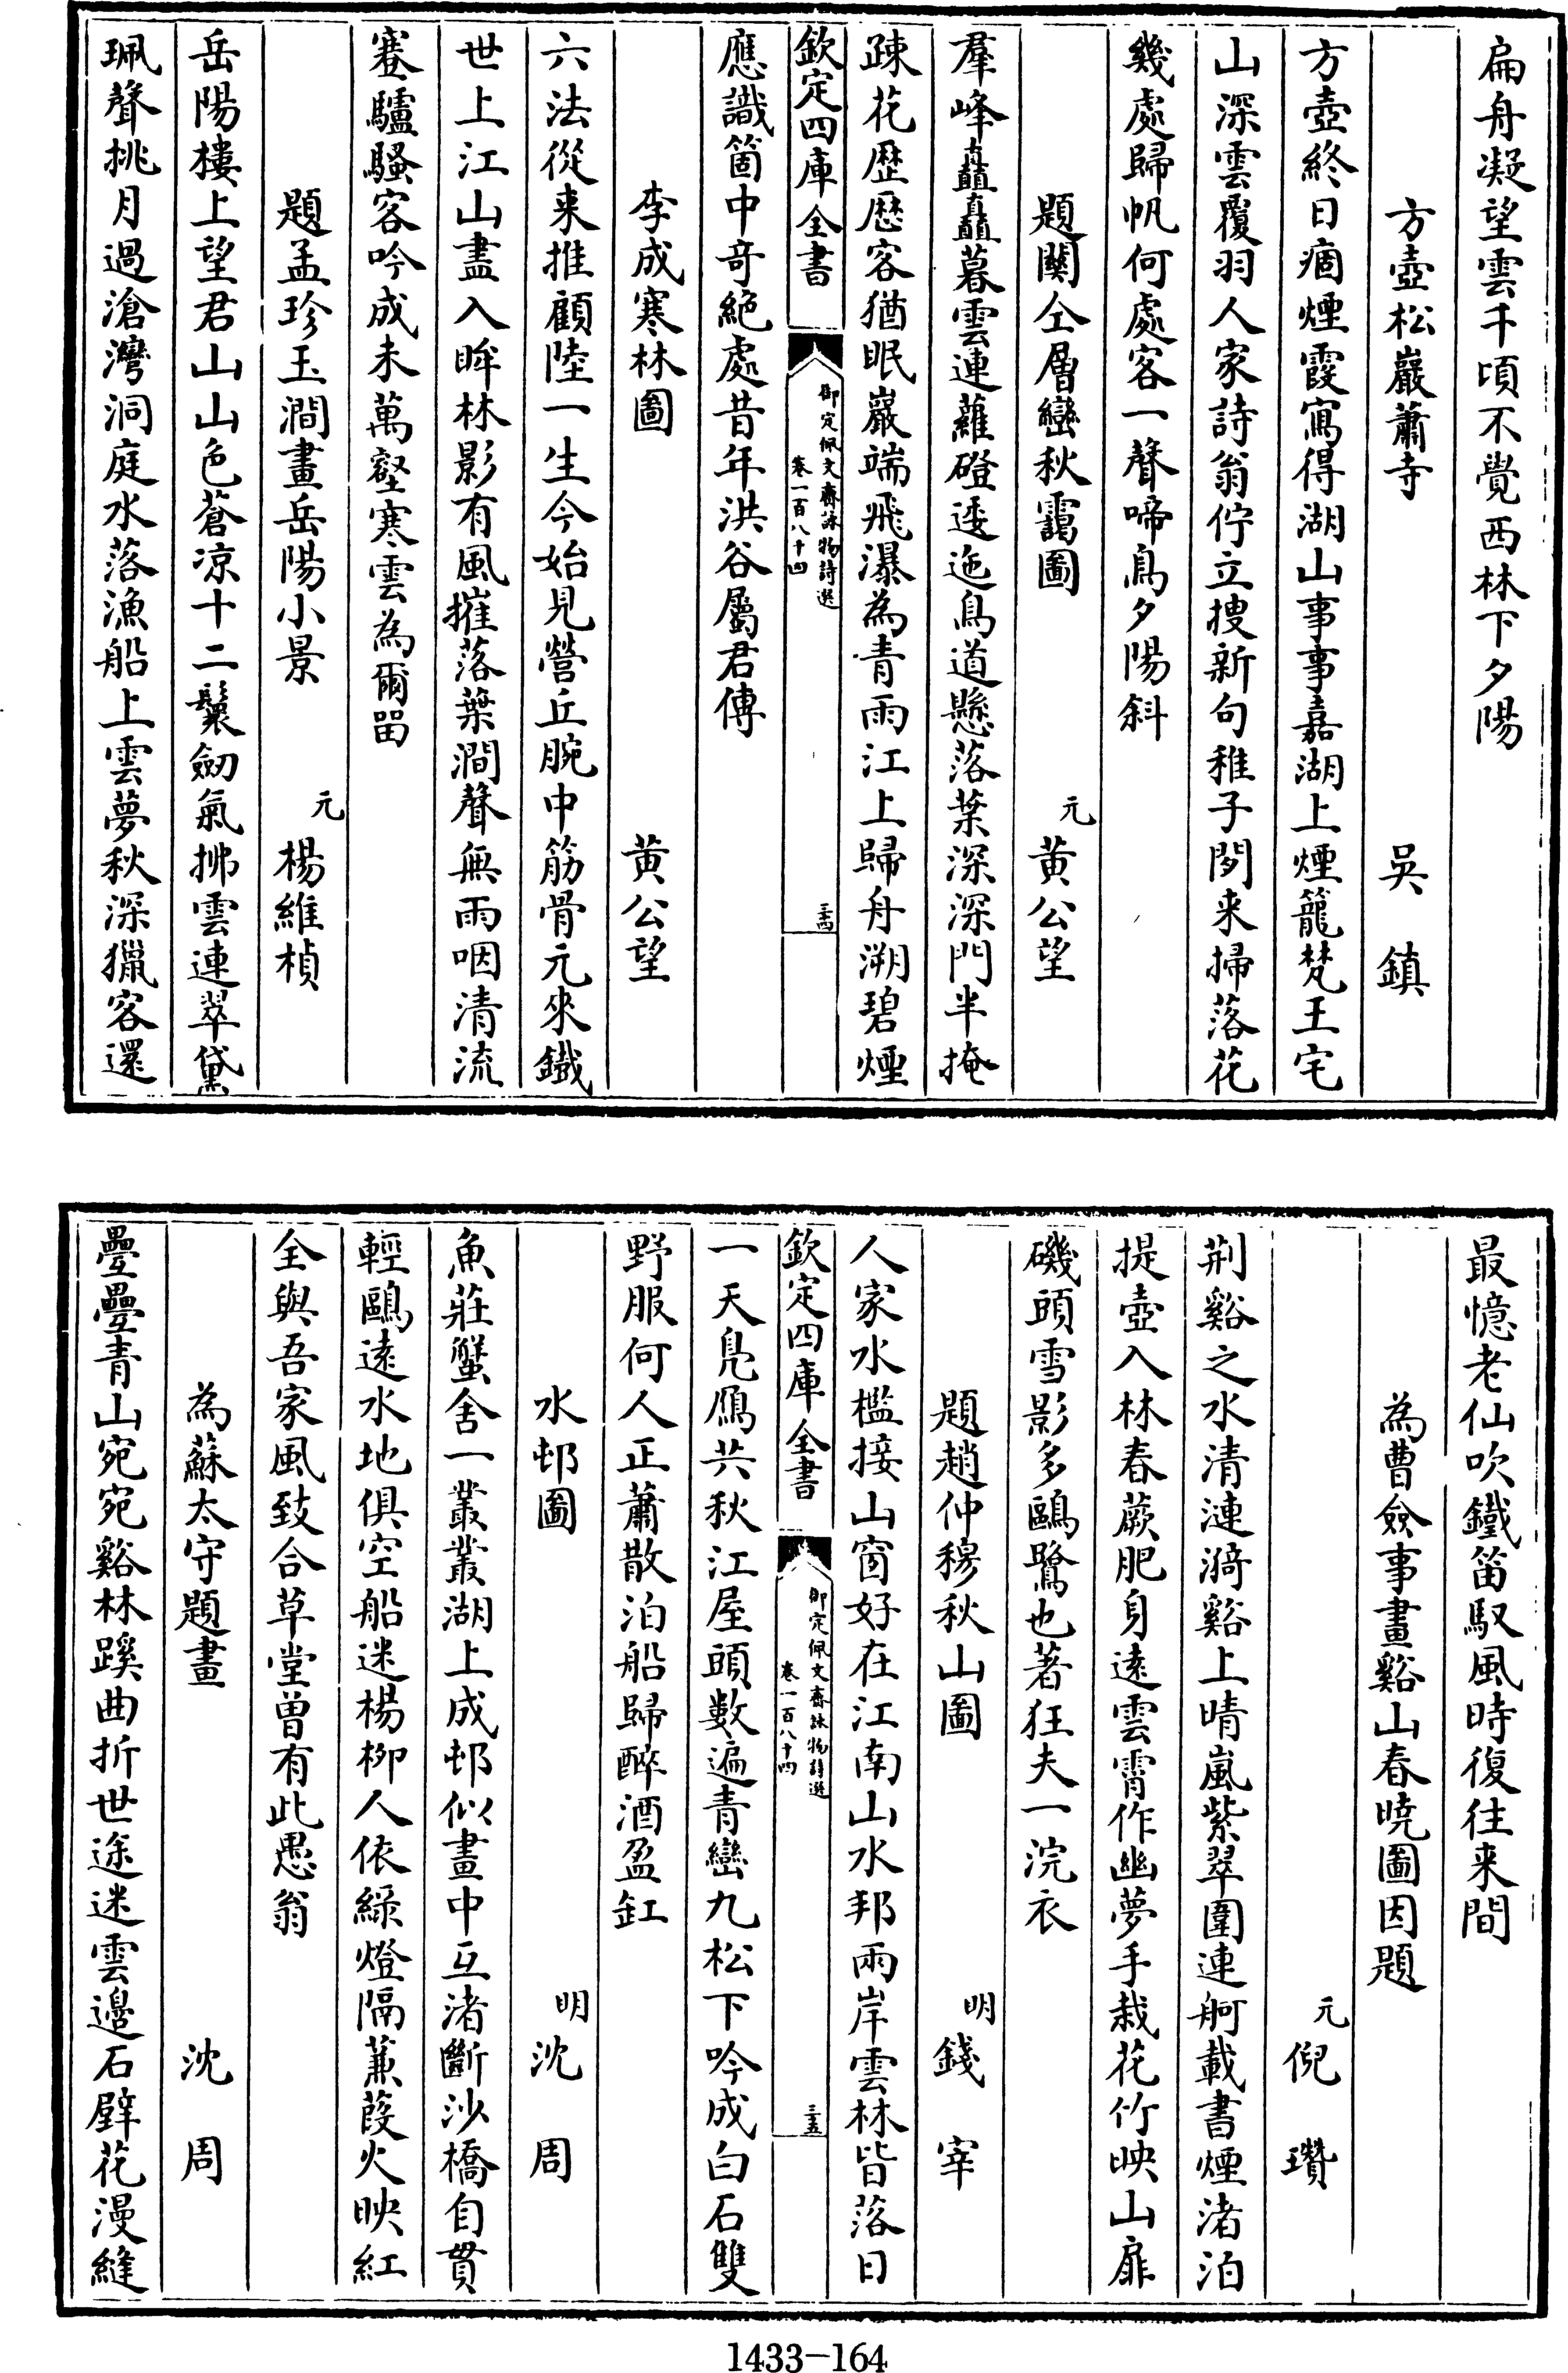 扁舟凝望雲千頃不覺西林下夕陽
方壺松巖蕭寺 吳鎮
方壺終日痼煙霞寫得湖山事事嘉湖上煙籠梵王宅
山深雲覆羽人家詩翁佇立搜新句稚子閑来掃落花
幾處歸帆何處客一聲啼鳥夕陽斜
題關仝層巒秋靄圖 元黃公望
羣峰矗矗暮雲連蘿磴逶迤鳥道懸落葉深深門半掩
疎花歴歴客猶眠巖端飛瀑為青雨江上歸舟溯碧煙
欽定四庫全書 御定佩文齋詠物詩選 卷一百八十四 三十四
應識箇中竒絶處昔年洪谷屬君傳
李成寒林圖 黃公望
六法從来推顧陸一生今始見營丘腕中筋骨元來鐵
世上江山盡入眸林影有風摧落葉澗聲無雨咽清流
蹇驢騷客吟成未萬壑寒雲為爾留
題孟珍玉澗畫岳陽小景 元楊維楨
岳陽樓上望君山山色蒼凉十二鬟劒氣拂雲連翠黛
珮聲挑月過滄灣洞庭水落漁船上雲夢秋深獵客還
最憶老仙吹鐵笛馭風時復往来間
為曹僉事畫谿山春曉圖因題
元倪瓚
荆谿之水清漣漪谿上晴嵐紫翠圍連舸載書煙渚泊
提壺入林春蕨肥身逺雲霄作幽夢手栽花竹映山扉
磯頭雪影多鷗鷺也著狂夫一浣衣
題趙仲穆秋山圖 明錢宰
人家水檻接山窗好在江南山水邦兩岸雲林皆落日
欽定四庫全書 御定佩文齋詠物詩選 卷一百八十四 三十五
一天鳬鴈共秋江屋頭數遍青巒九松下吟成白石雙
野服何人正蕭散泊船歸醉酒盈缸
水邨圖 明沈周
魚莊蟹舍一叢叢湖上成邨似畫中互渚斷沙橋自貫
輕鷗逺水地俱空船迷楊柳人依緑燈隔蒹葭火映紅
全與吾家風致合草堂曽有此愚翁
為蘇太守題畫 沈周
疊疊青山宛宛谿林蹊曲折世途迷雲邊石壁花漫縫
1433-164